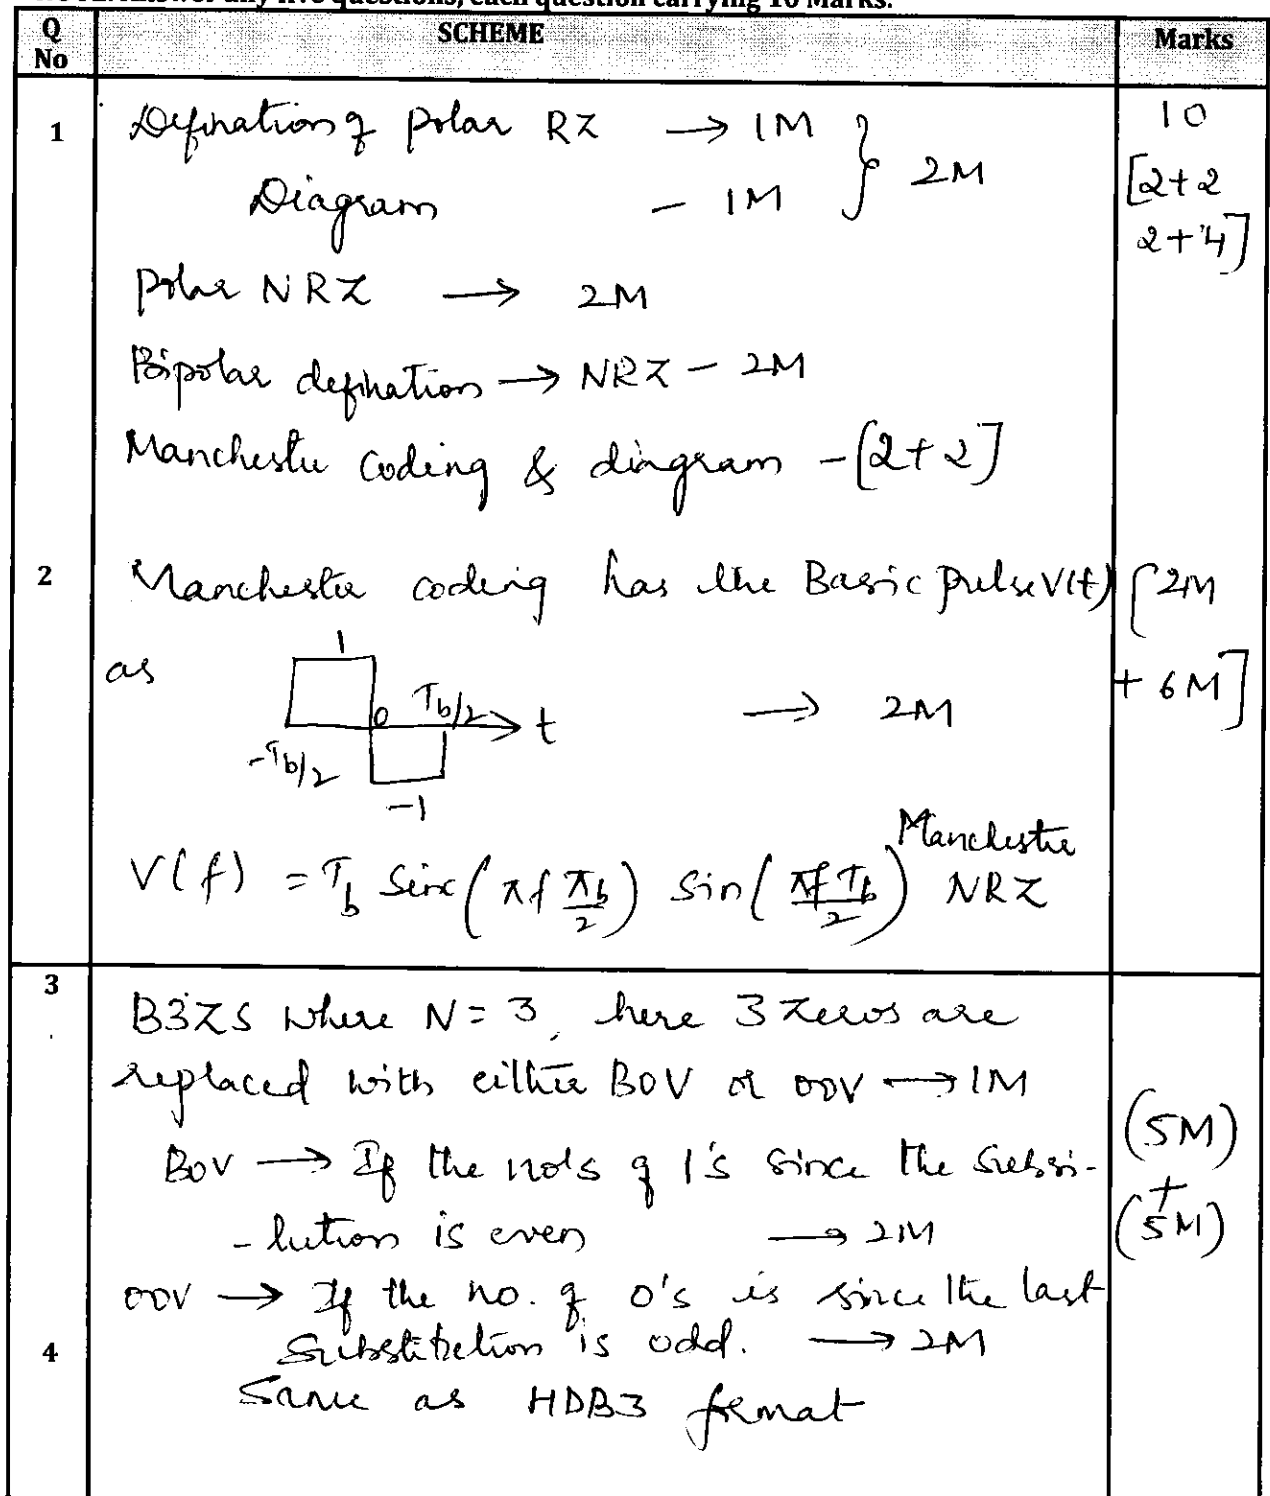 any five questions, each question carrying 10 Marks.
Q No
SCHEME
Marks
1
Defination of Polar RZ → 1M
Diagram - 1M } 2M
10
[2+2
2+4]
Polar NRZ → 2M
Bipolar defination → NRZ - 2M
Manchester coding & diagram - [2+2]
2
Manchester coding has the Basic pulse V(t)
[2M
+ 6M]
as
1
0 Tb/2 t
-Tb/2
-1
→ 2M
V(f) = Tb Sinc(πf Tb/2) Sin(πf Tb/2) Manchester NRZ
3
B3ZS where N=3, here 3 zeros are
replaced with either BOV or OOV → 1M
BOV → If the no's of 1's since the Subsi-
-tution is even → 2M
(5M)
+
(5M)
OOV → If the no. of 0's is since the last
Substitution is odd. → 2M
4
Same as HDB3 format